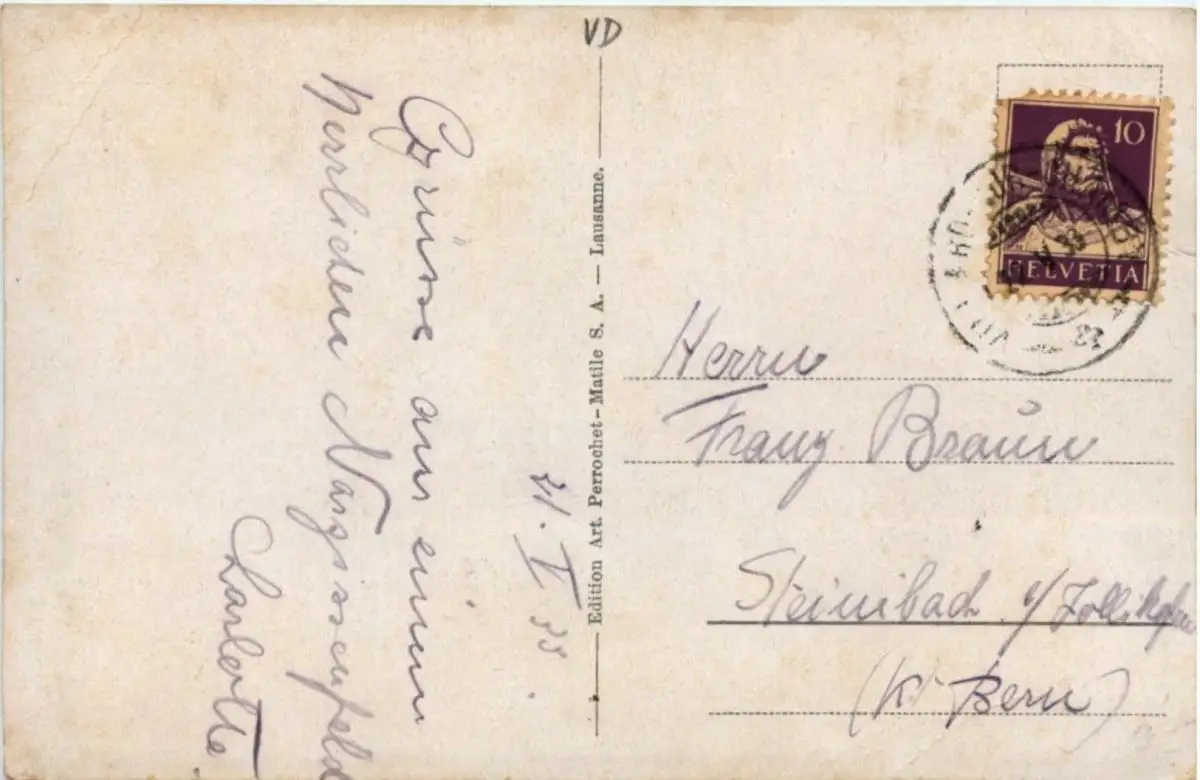 VD
Grüsse aus einem
herrlichen Narzissenfeld
Charlotte.
21. V 33.
Edition Art. Perrochet-Matile S. A. — Lausanne.
10
HELVETIA
Herrn
Franz Braun
Steinibach
(Kt Bern)